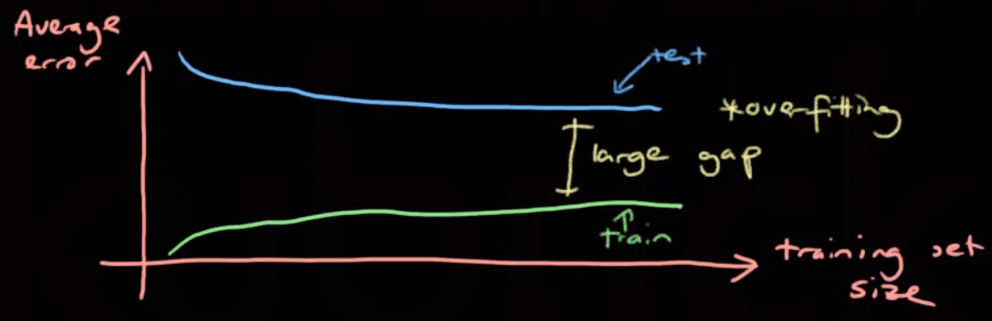 Average
error
test
*overfitting
large gap
train
training set
size